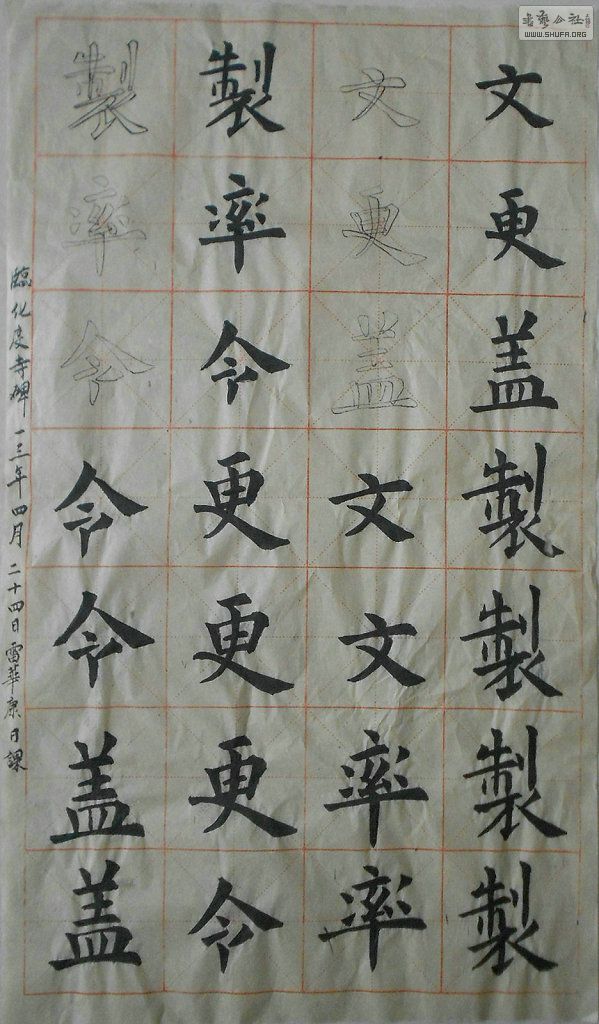 文更盖製製製製
文更盖文文率率
製率令更更更令
製率令令令盖盖
臨化度寺碑一三年四月二十四日雷華康日課
書藝公社
WWW.SHUFA.ORG